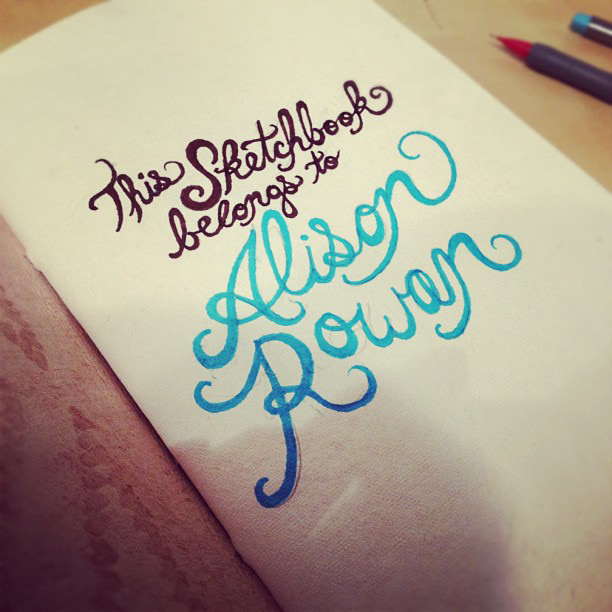 This Sketchbook
belongs to
Alison
Rowan